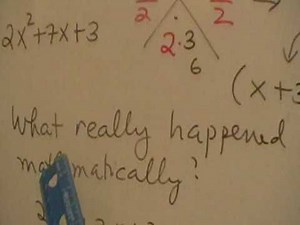 2 2
2x²+7x+3
2·3
6
(x+3
What really happened
mathematically?
2